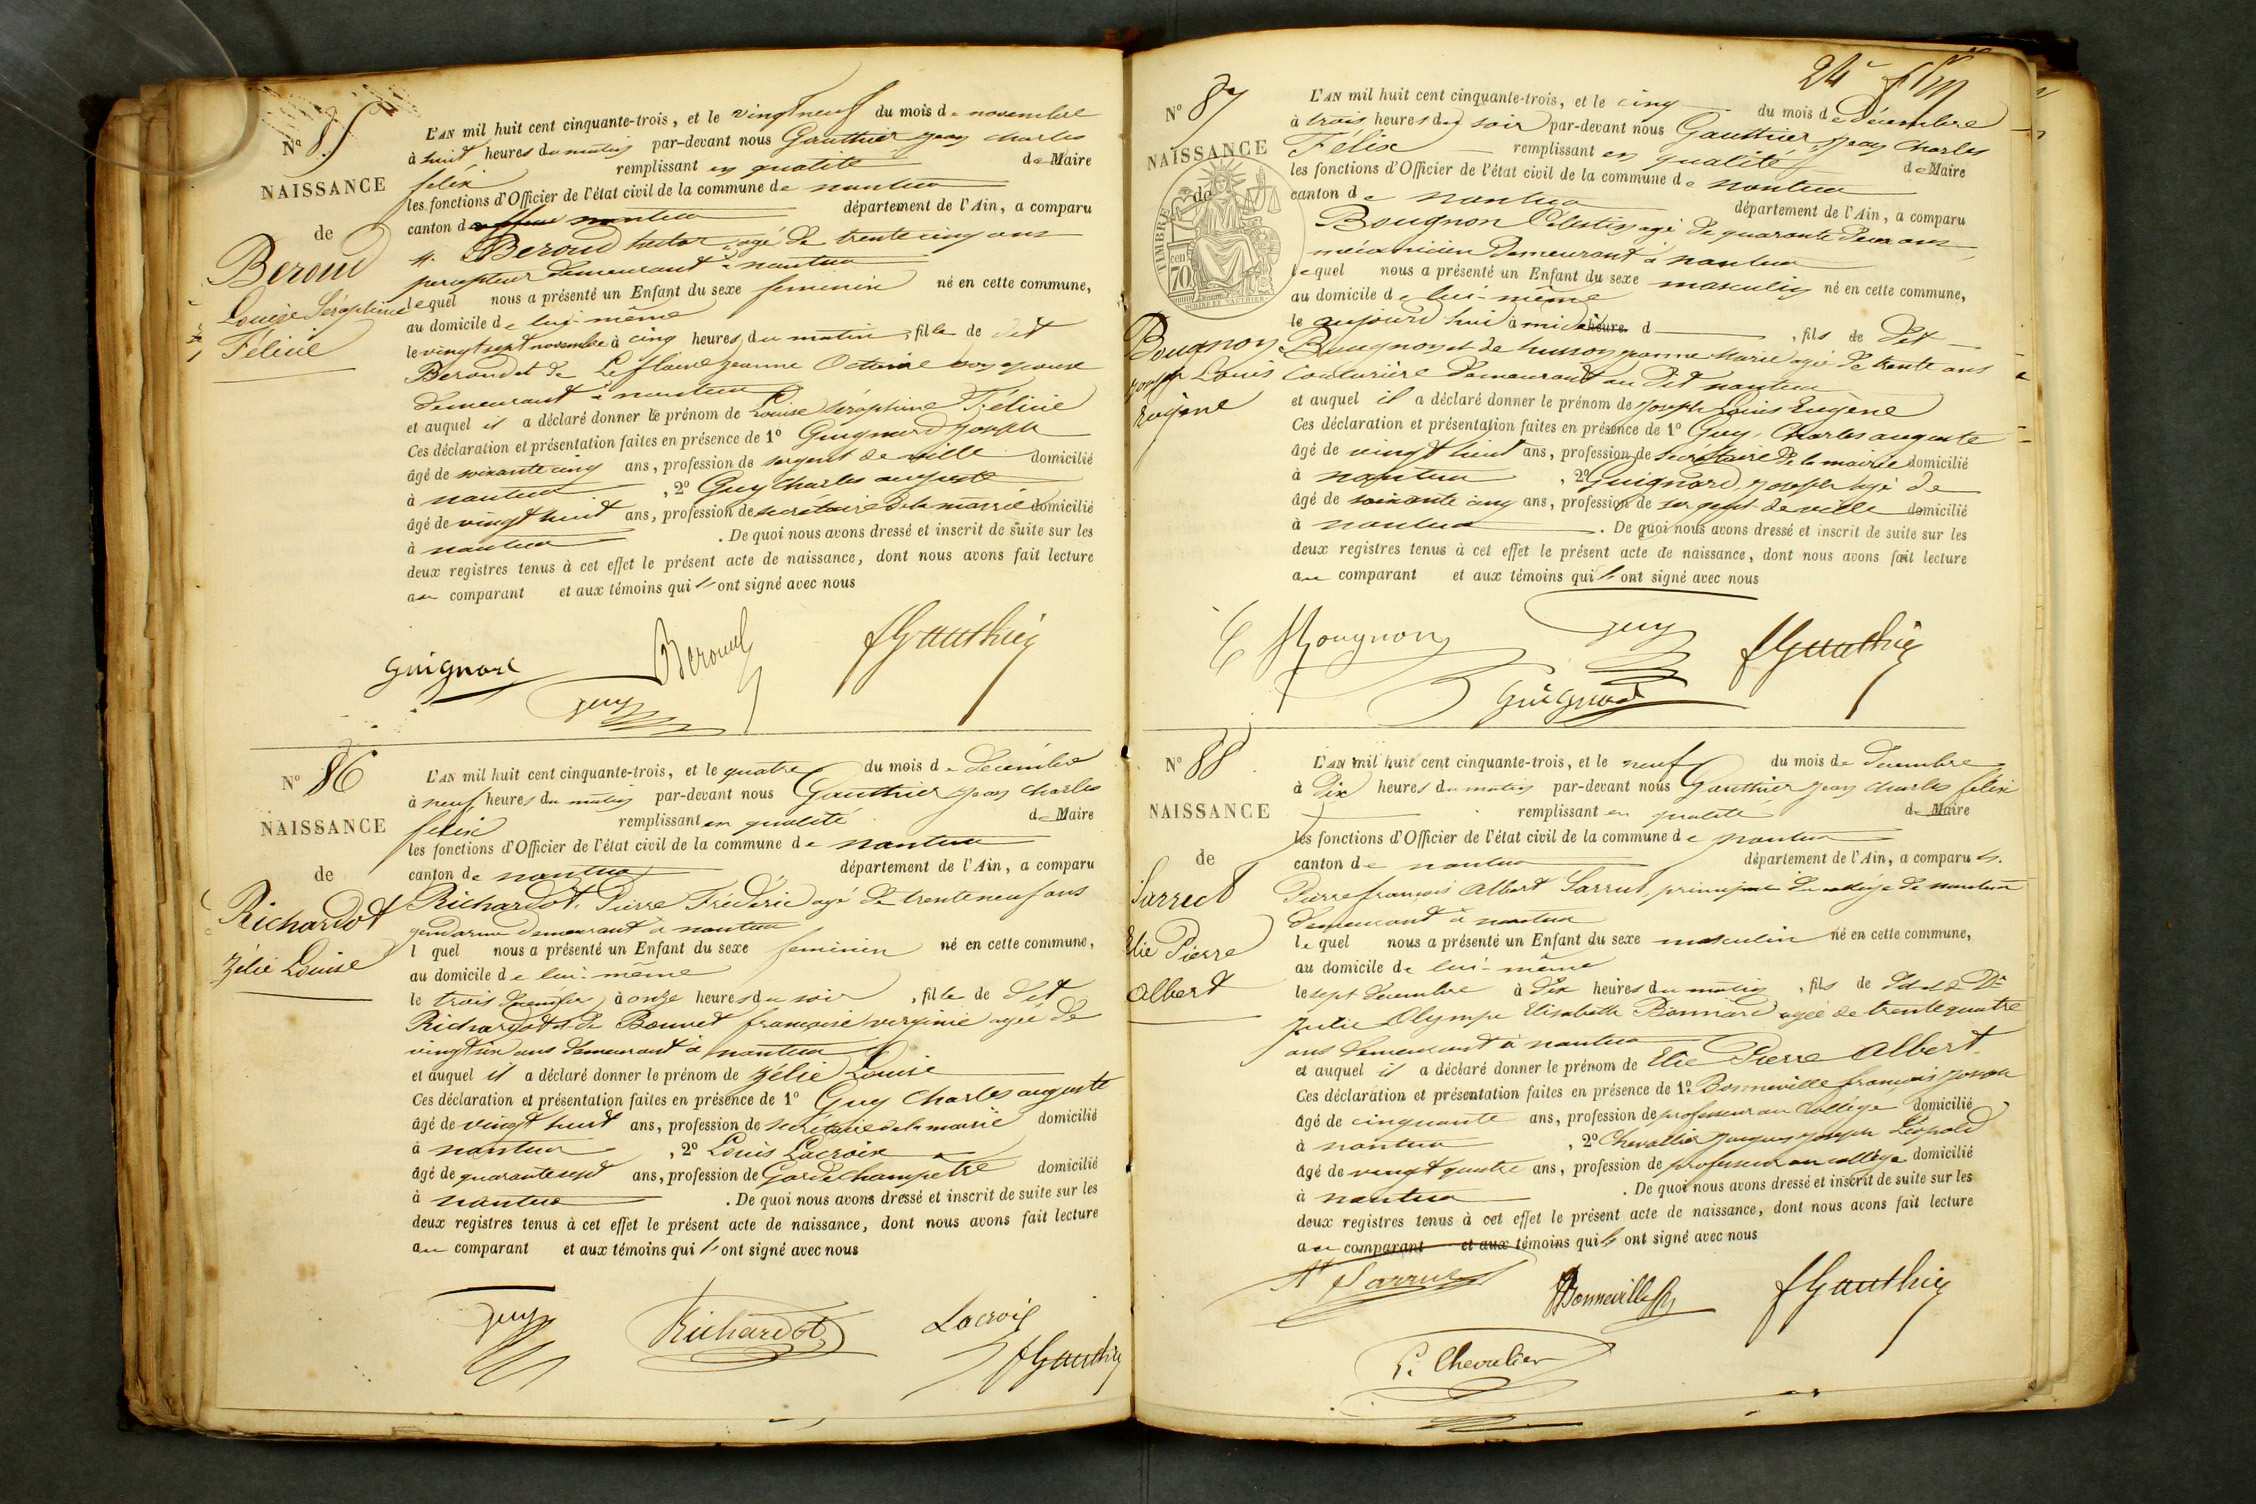 N° 85
NAISSANCE
de
Beroud
Louise Séraphine
Félicie
L'AN mil huit cent cinquante-trois, et le vingt neuf du mois de novembre
à huit heures du matin par-devant nous Gauthier jean charles
felix remplissant en qualité de Maire
les fonctions d'Officier de l'état civil de la commune de nantua
canton de nantua département de l'Ain, a comparu
M. Beroud hector agé de trente cinq ans
percepteur demeurant à nantua
lequel nous a présenté un Enfant du sexe feminin né en cette commune,
au domicile de lui-même
le vingt sept novembre à cinq heures du matin, fille de dit
Beroud et de jeanne Octavie son epouse
demeurant à nantua
et auquel il a déclaré donner le prénom de Louise Séraphine Félicie
Ces déclaration et présentation faites en présence de 1° Guignard joseph
âgé de soixante cinq ans, profession de sergent de ville domicilié
à nantua, 2° Guy Charles auguste
âgé de vingt huit ans, profession de secrétaire de la mairie domicilié
à nantua. De quoi nous avons dressé et inscrit de suite sur les
deux registres tenus à cet effet le présent acte de naissance, dont nous avons fait lecture
au comparant et aux témoins qui ont signé avec nous
Guignard Beroud fGauthier
guy
N° 86
NAISSANCE
de
Richardot
Zélie Louise
L'AN mil huit cent cinquante-trois, et le quatre du mois de decembre
à neuf heures du matin par-devant nous Gauthier jean charles
felix remplissant en qualité de Maire
les fonctions d'Officier de l'état civil de la commune de nantua
canton de nantua département de l'Ain, a comparu
Richardot Pierre Fréderic agé de trente neuf ans
gendarme demeurant à nantua
l quel nous a présenté un Enfant du sexe feminin né en cette commune,
au domicile de lui-même
le trois decembre à onze heures du soir, fille de dit
Richardot et de Bouvet françoise virginie agée de
vingt six ans demeurant à nantua
et auquel il a déclaré donner le prénom de Zélie Louise
Ces déclaration et présentation faites en présence de 1° Guy Charles auguste
âgé de vingt huit ans, profession de secrétaire de la mairie domicilié
à nantua, 2° Louis Lacroix
âgé de quarante sept ans, profession de Garde champetre domicilié
à nantua. De quoi nous avons dressé et inscrit de suite sur les
deux registres tenus à cet effet le présent acte de naissance, dont nous avons fait lecture
au comparant et aux témoins qui ont signé avec nous
guy Richardot Lacroix
fGauthier
24e
N° 87
NAISSANCE
de
TIMBRE
cen 70
Bougnon
joseph Louis
Eugène
L'AN mil huit cent cinquante-trois, et le cinq du mois de décembre
à trois heures du soir par-devant nous Gauthier jean Charles
Félix remplissant en qualité de Maire
les fonctions d'Officier de l'état civil de la commune de nantua
canton de nantua département de l'Ain, a comparu
Bougnon Célestin agé de quarante deux ans
mécanicien demeurant à nantua
lequel nous a présenté un Enfant du sexe masculin né en cette commune,
au domicile de lui-même
le aujourd'hui à midi heure d, fils de dit
Bougnon et de husson jeanne Marie agée de trente ans
Couturière demeurant au dit nantua
et auquel il a déclaré donner le prénom de joseph Louis Eugène
Ces déclaration et présentation faites en présence de 1° Guy, Charles auguste
âgé de vingt huit ans, profession de secrétaire de la mairie domicilié
à nantua, 2° Guignard, joseph agé de
âgé de soixante cinq ans, profession de sergent de ville domicilié
à nantua. De quoi nous avons dressé et inscrit de suite sur les
deux registres tenus à cet effet le présent acte de naissance, dont nous avons fait lecture
au comparant et aux témoins qui ont signé avec nous
C Bougnon guy fGauthier
Guignard
N° 88
NAISSANCE
de
Sarrut
Elie Pierre
Albert
L'AN mil huit cent cinquante-trois, et le neuf du mois de decembre
à dix heures du matin par-devant nous Gauthier jean charles felix
remplissant en qualité de Maire
les fonctions d'Officier de l'état civil de la commune de nantua
canton de nantua département de l'Ain, a comparu M.
Pierre françois Albert Sarrut, principal du collége de nantua
demeurant à nantua
le quel nous a présenté un Enfant du sexe masculin né en cette commune,
au domicile de lui-même
le sept decembre à dix heures du matin, fils de dit et de De
Julie Olympe Elisabeth Bonnard agée de trente quatre
ans demeurant à nantua
et auquel il a déclaré donner le prénom de Elie Pierre Albert
Ces déclaration et présentation faites en présence de 1° Bonneville françois joseph
âgé de cinquante ans, profession de professeur au collége domicilié
à nantua, 2° Chevallier jacques joseph Léopold
âgé de vingt quatre ans, profession de professeur au collége domicilié
à nantua. De quoi nous avons dressé et inscrit de suite sur les
deux registres tenus à cet effet le présent acte de naissance, dont nous avons fait lecture
au comparant et aux témoins qui ont signé avec nous
Sarrut Bonneville fGauthier
L. Chevalier